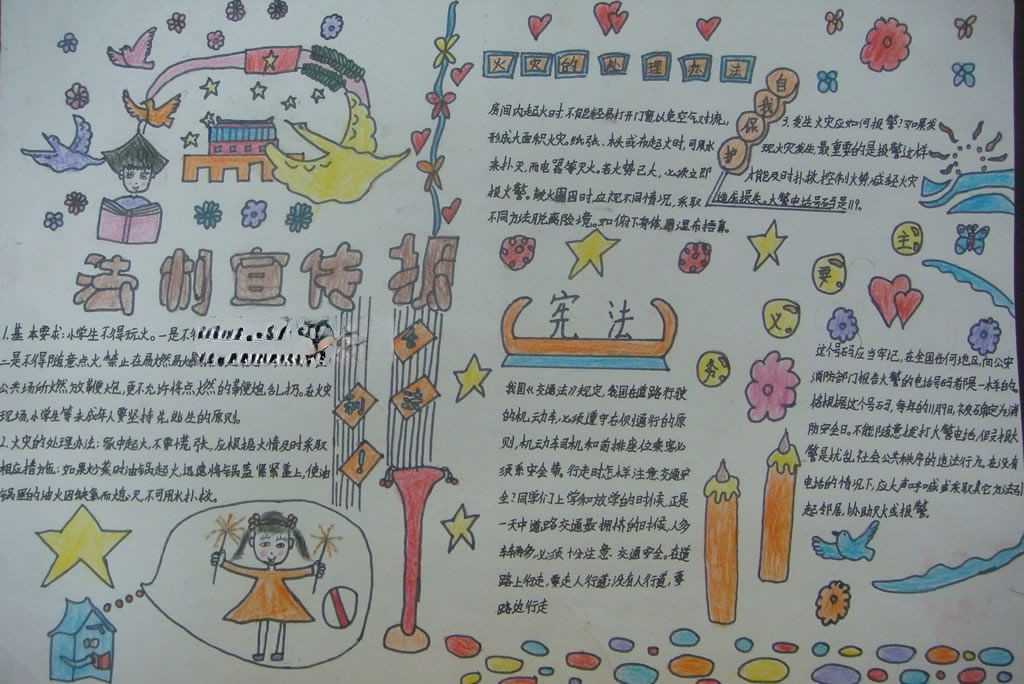 法制宣传报
1.基本要求:小学生不得玩火。一是不
二是不得随意点火,禁止在易燃易
公共场所燃放鞭炮,更不允许将点燃的鞭炮乱扔。在火灾
现场,小学生等未成年人要坚持先逃生的原则。
2.火灾的处理办法:家中起火,不要慌张,应根据火情及时采取
相应措施:如果炒菜时油锅起火,迅速将锅盖紧紧盖上,使油
锅里的油火因缺氧而熄灭,不可用水扑救。
火灾的处理办法
房间内起火时,不能轻易打开门窗以免空气对流,
形成大面积火灾。纸张、木头或布起火时,可用水
来扑灭,而电器等灭火。若火势已大,必须立即
报火警。被火围困时,应视不同情况,采取
不同方法脱离险境。如俯下身体,用湿布捂鼻。
自我保护
3.发生火灾应如何报警?如果发
现火灾发生,最重要的是报警这样
才能及时扑救,控制火势,减轻火灾
造成损失。火警电话号码是119。
宪法
我国《交通法》规定,我国在道路行驶
的机动车,必须遵守右侧通行的原
则,机动车司机和前排座位乘客必
须系安全带。行走时怎样注意交通安
全?同学们上学和放学的时候,正是
一天中道路交通最拥挤的时候,人多
车辆多,必须十分注意交通安全。在道
路上行走,要走人行道;没有人行道,要
路边行走
主要义务
这个号码应当牢记,在全国任何地区,向公安
消防部门报告火警的电话号码都是一样的。
根据这个号码,每年的11月9日,被确定为消
防安全日。不能随意拨打火警电话,假报火
警是扰乱社会公共秩序的违法行为。在没有
电话的情况下,应大声呼喊或采取其它方法引
起邻居,协助灭火或报警。